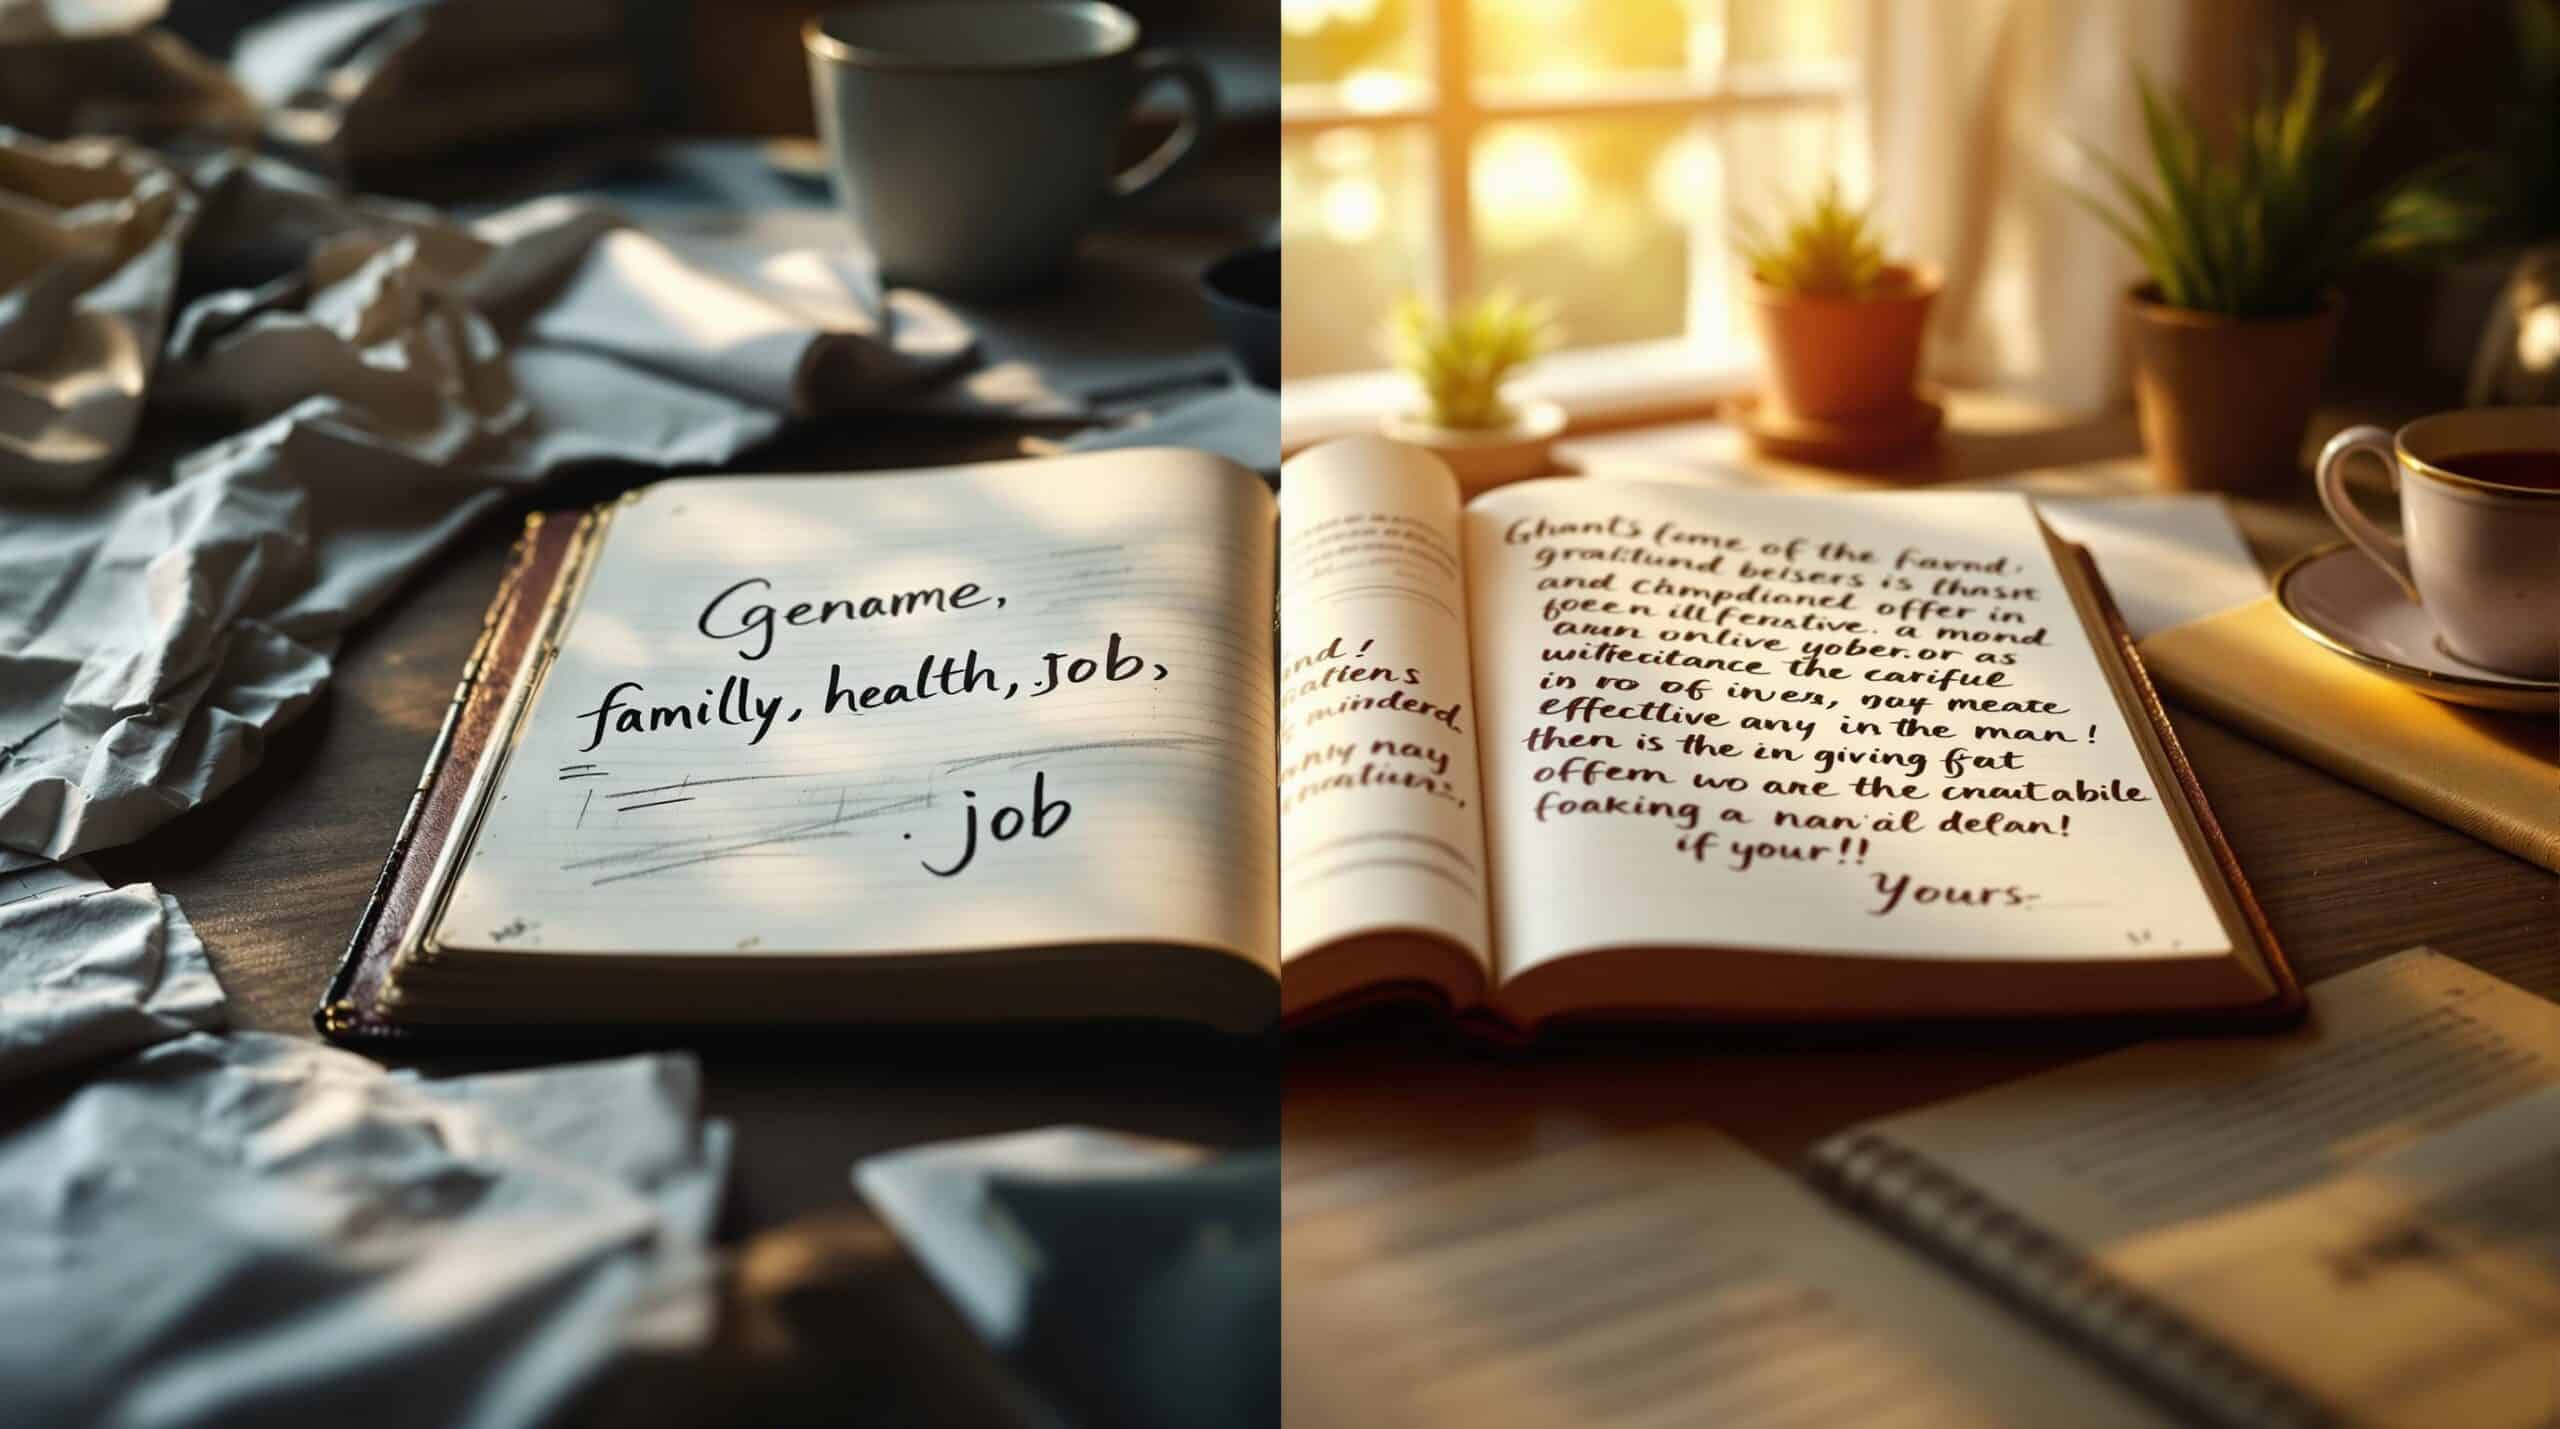 Genarme,
familly, health, Job,
. job
nd!
atiens
minderd.
nay
Ghants fome of the Favnd.
gratitund beisers is thasre
and champdianel offer in
foeen illfenstive. a mond
arun onlive yober.or as
wiffecitance the cariful
in ro of inves, nay meate
effectlive any in the man!
then is the in giving fat
offem wo are the cnautabile
foaking a nan'al delan!
if your!!
Yours-